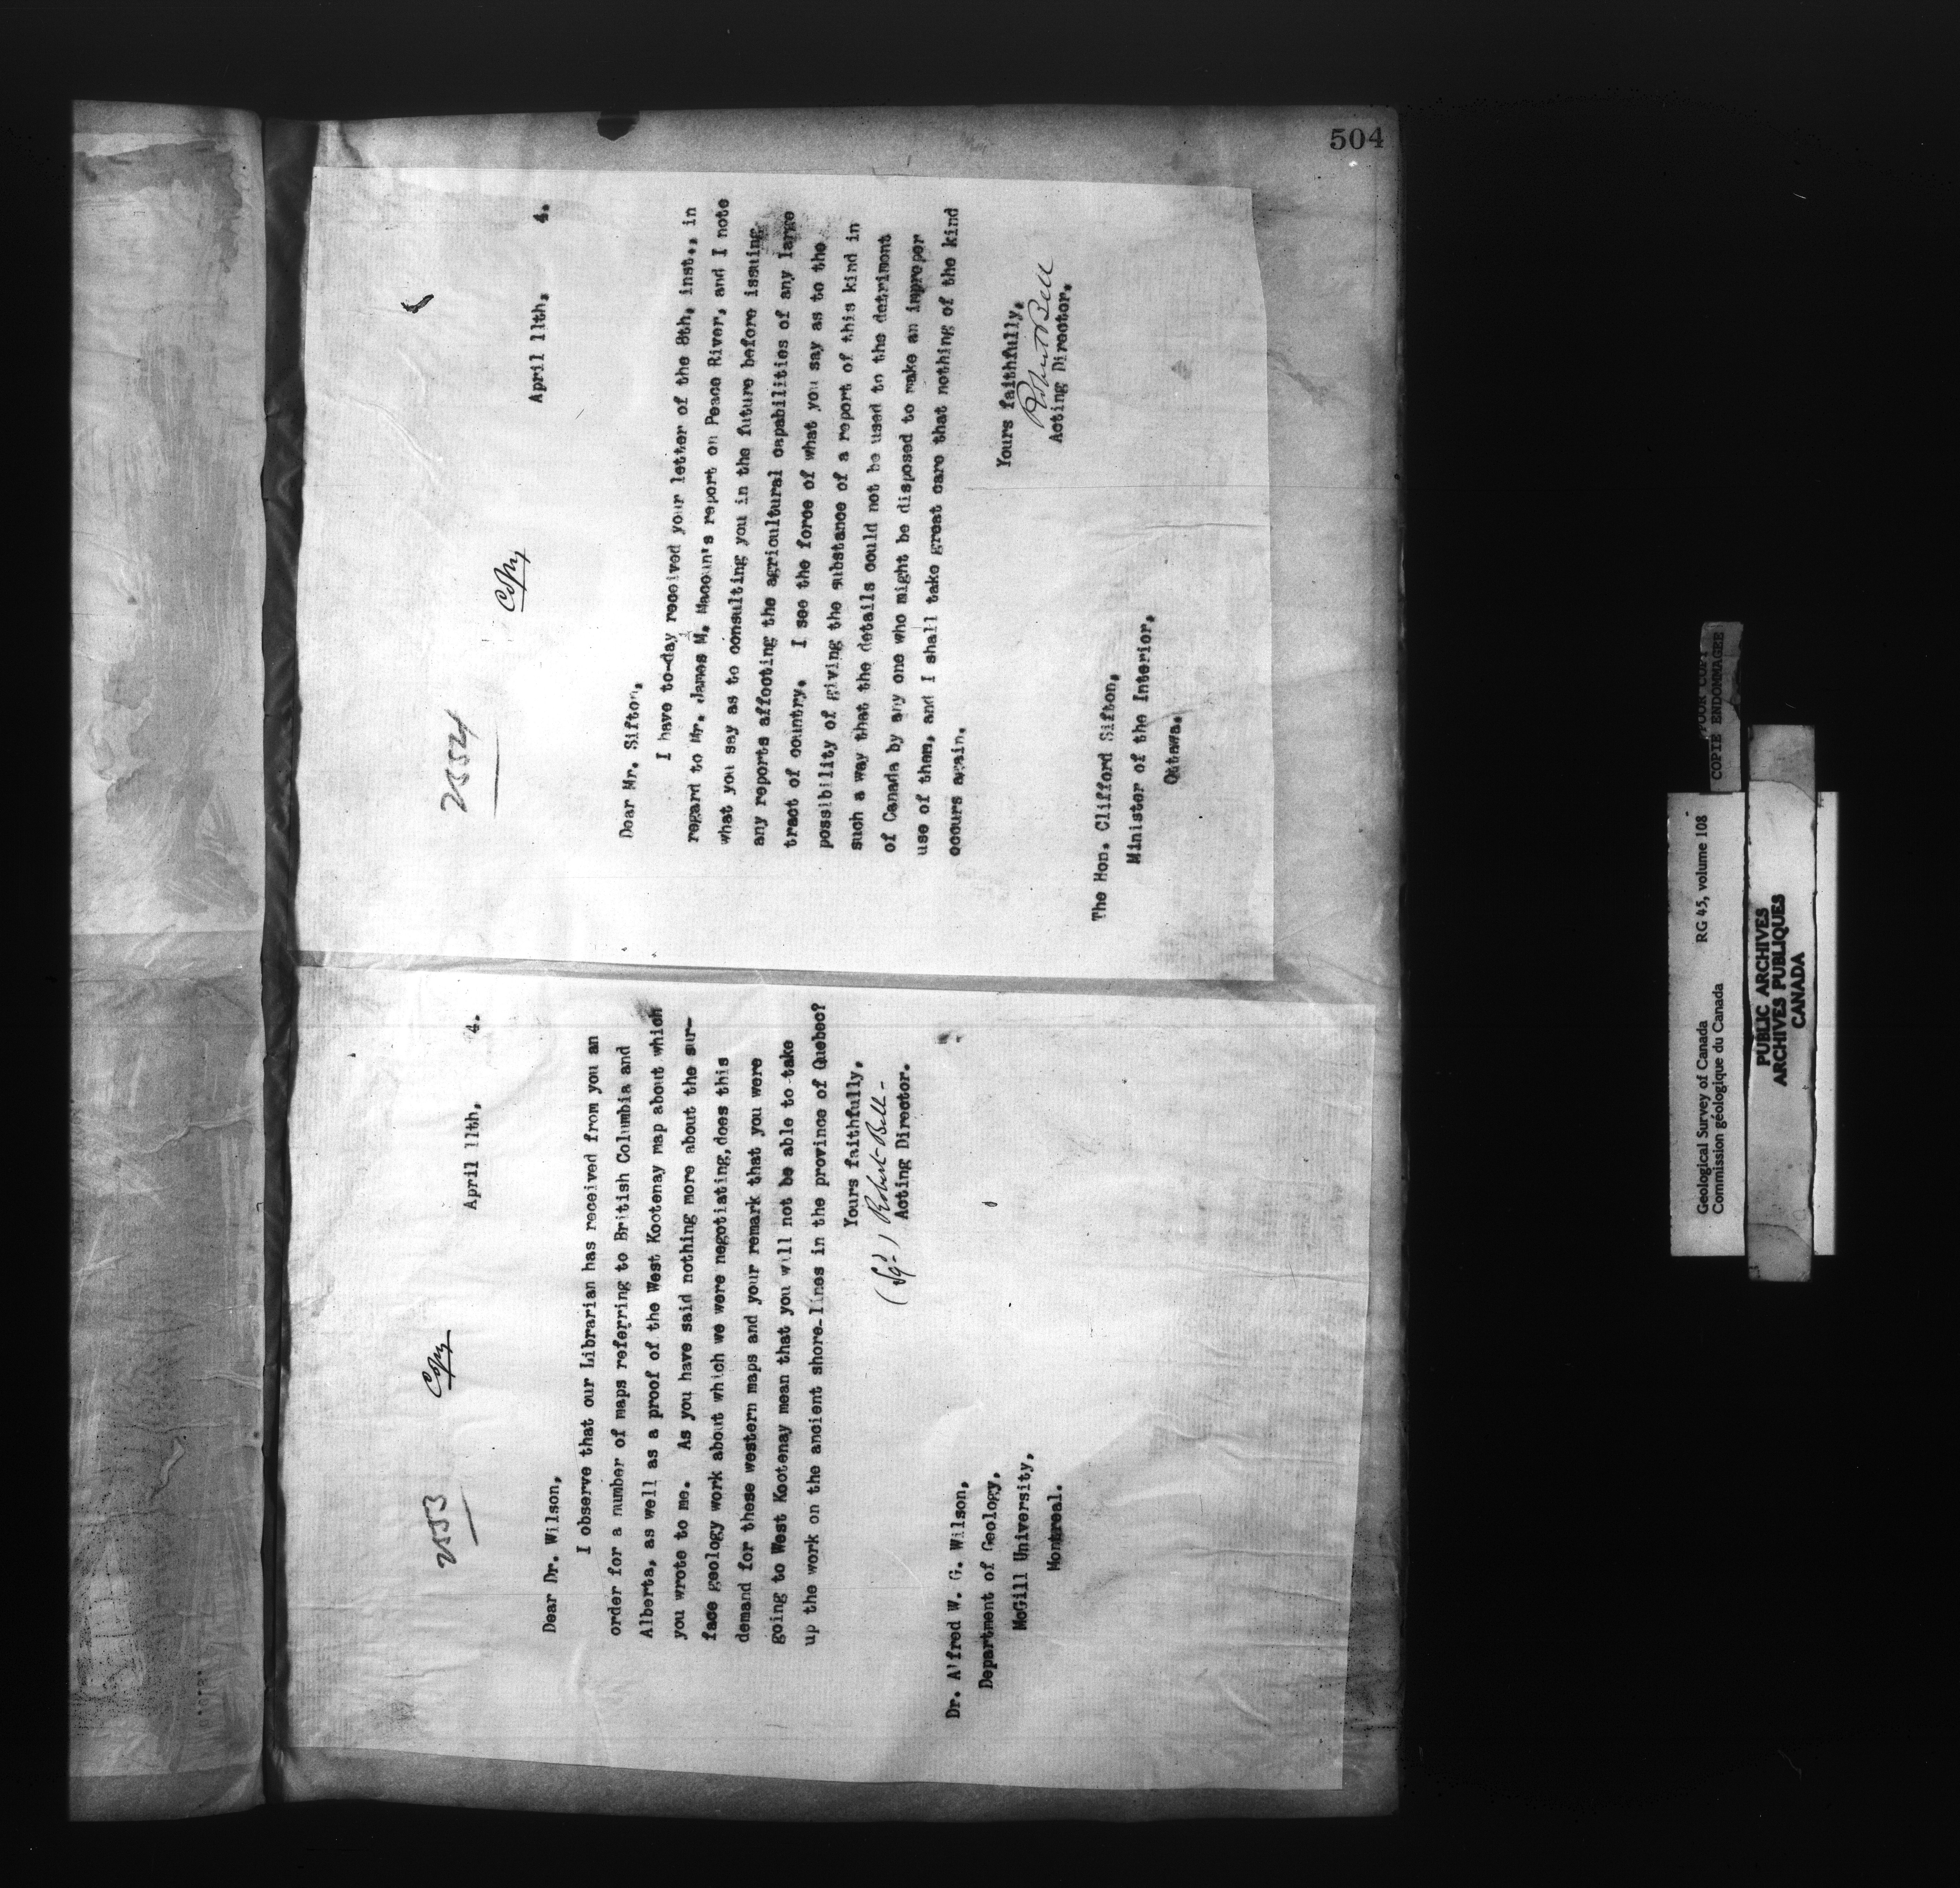 504
2553
Copy
April 11th,  4.
Dear Dr. Wilson,
I observe that our Librarian has received from you an
order for a number of maps referring to British Columbia and
Alberta, as well as a proof of the West Kootenay map about which
you wrote to me.  As you have said nothing more about the sur-
face geology work about which we were negotiating, does this
demand for these western maps and your remark that you were
going to West Kootenay mean that you will not be able to take
up the work on the ancient shore-lines in the province of Quebec?
Yours faithfully,
(Sgd) Robert Bell-
Acting Director.
Dr. Alfred W. G. Wilson,
Department of Geology,
McGill University,
Montreal.
2554
Copy
April 11th,  4.
Dear Mr. Sifton,
I have to-day received your letter of the 8th, inst., in
regard to Mr. James M. Macoun's report on Peace River, and I note
what you say as to consulting you in the future before issuing
any reports affecting the agricultural capabilities of any large
tract of country.  I see the force of what you say as to the
possibility of giving the substance of a report of this kind in
such a way that the details could not be used to the detriment
of Canada by any one who might be disposed to make an improper
use of them, and I shall take great care that nothing of the kind
occurs again.
Yours faithfully,
Robert Bell
Acting Director.
The Hon. Clifford Sifton,
Minister of the Interior,
Ottawa.
POOR COPY
COPIE ENDOMMAGEE
Geological Survey of Canada  RG 45, volume 108
Commission géologique du Canada
PUBLIC ARCHIVES
ARCHIVES PUBLIQUES
CANADA